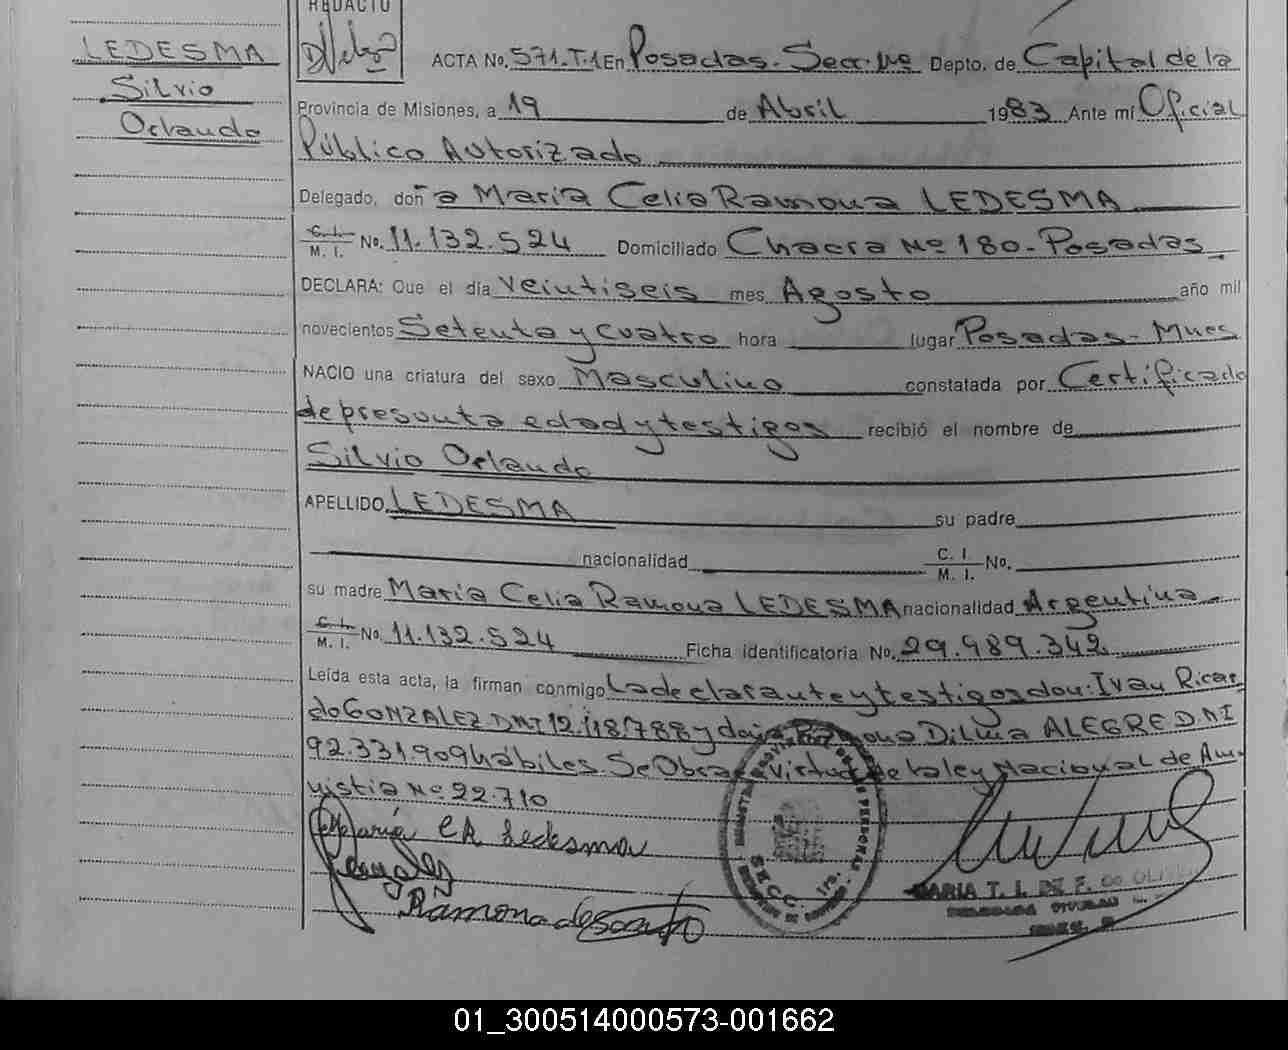 REDACTO
LEDESMA
Silvio
Orlando
ACTA No. 571.T.1 En Posadas. Secc. Depto. de Capital de la
Provincia de Misiones, a 19 de Abril 1983 Ante mí Oficial
Público Autorizado
Delegado, doña María Celia Ramona LEDESMA
C. I. / M. I. No. 11.132.524 Domiciliado Chacra Nº 180.- Posadas
DECLARA: Que el día Veintiseis mes Agosto año mil
novecientos Setenta y cuatro hora lugar Posadas - Mnes
NACIO una criatura del sexo Masculino constatada por Certificado
de presunta edad y testigos recibió el nombre de
Silvio Orlando
APELLIDO LEDESMA su padre
nacionalidad C. I. / M. I. No.
su madre María Celia Ramona LEDESMA nacionalidad Argentina
C. I. / M. I. No. 11.132.524 Ficha identificatoria No. 29.989.342
Leída esta acta, la firman conmigo La declarante y testigos don: Ivan Ricar
do GONZALEZ DNI 12.118.788 y doña Ramona Dilma ALEGRE D.N.I
92.331.909 hábiles. Se Obra virtud de la ley Nacional de Am
nistia Nº 22.710
María C R Ledesma
Ramona de
MARIA T. I. DE F.
01_300514000573-001662